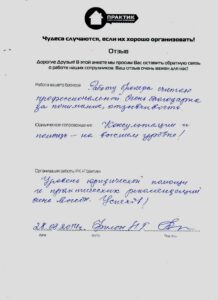 ПРАКТИК
Чудеса случаются, если их хорошо организовать!
Отзыв
Дорогие Друзья! В этой анкете мы просим Вас оставить обратную связь
о работе наших сотрудников. Ваш отзыв очень важен для нас!
Работа вашего брокера Работу брокера считаю
профессиональной. Очень благодарна
за понимание, отзывчивость
Юридическое сопровождение "Консультации и
помощь - на высшем уровне!
Организация работы УК «Практик»
"Уровень юридической помощи
и практических рекомендаций
очень высок. Успехов!
28.03.2014г.
дата
фио
подпись